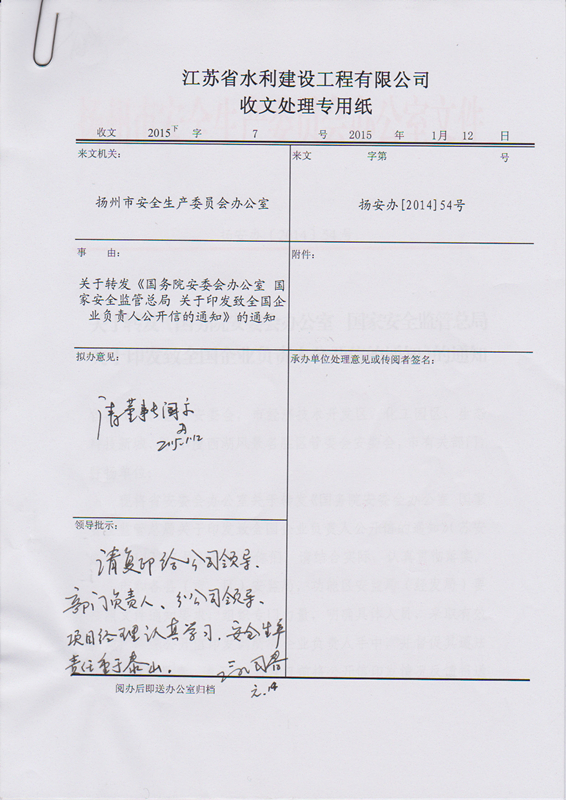 江苏省水利建设工程有限公司
收文处理专用纸
收文 2015下 字 7 号 2015 年 1月 12 日
来文机关：
来文 字第 号
扬州市安全生产委员会办公室
扬安办[2014]54号
事 由：
附件：
关于转发《国务院安委会办公室 国
家安全监管总局 关于印发致全国企
业负责人公开信的通知》的通知
拟办意见：
承办单位处理意见或传阅者签名：
请董事长阅示
2015.1.12
领导批示：
请复印给公司领导、
部门负责人、分公司领导、
项目经理认真学习，安全生产
责任重于泰山。
元.14
阅办后即送办公室归档